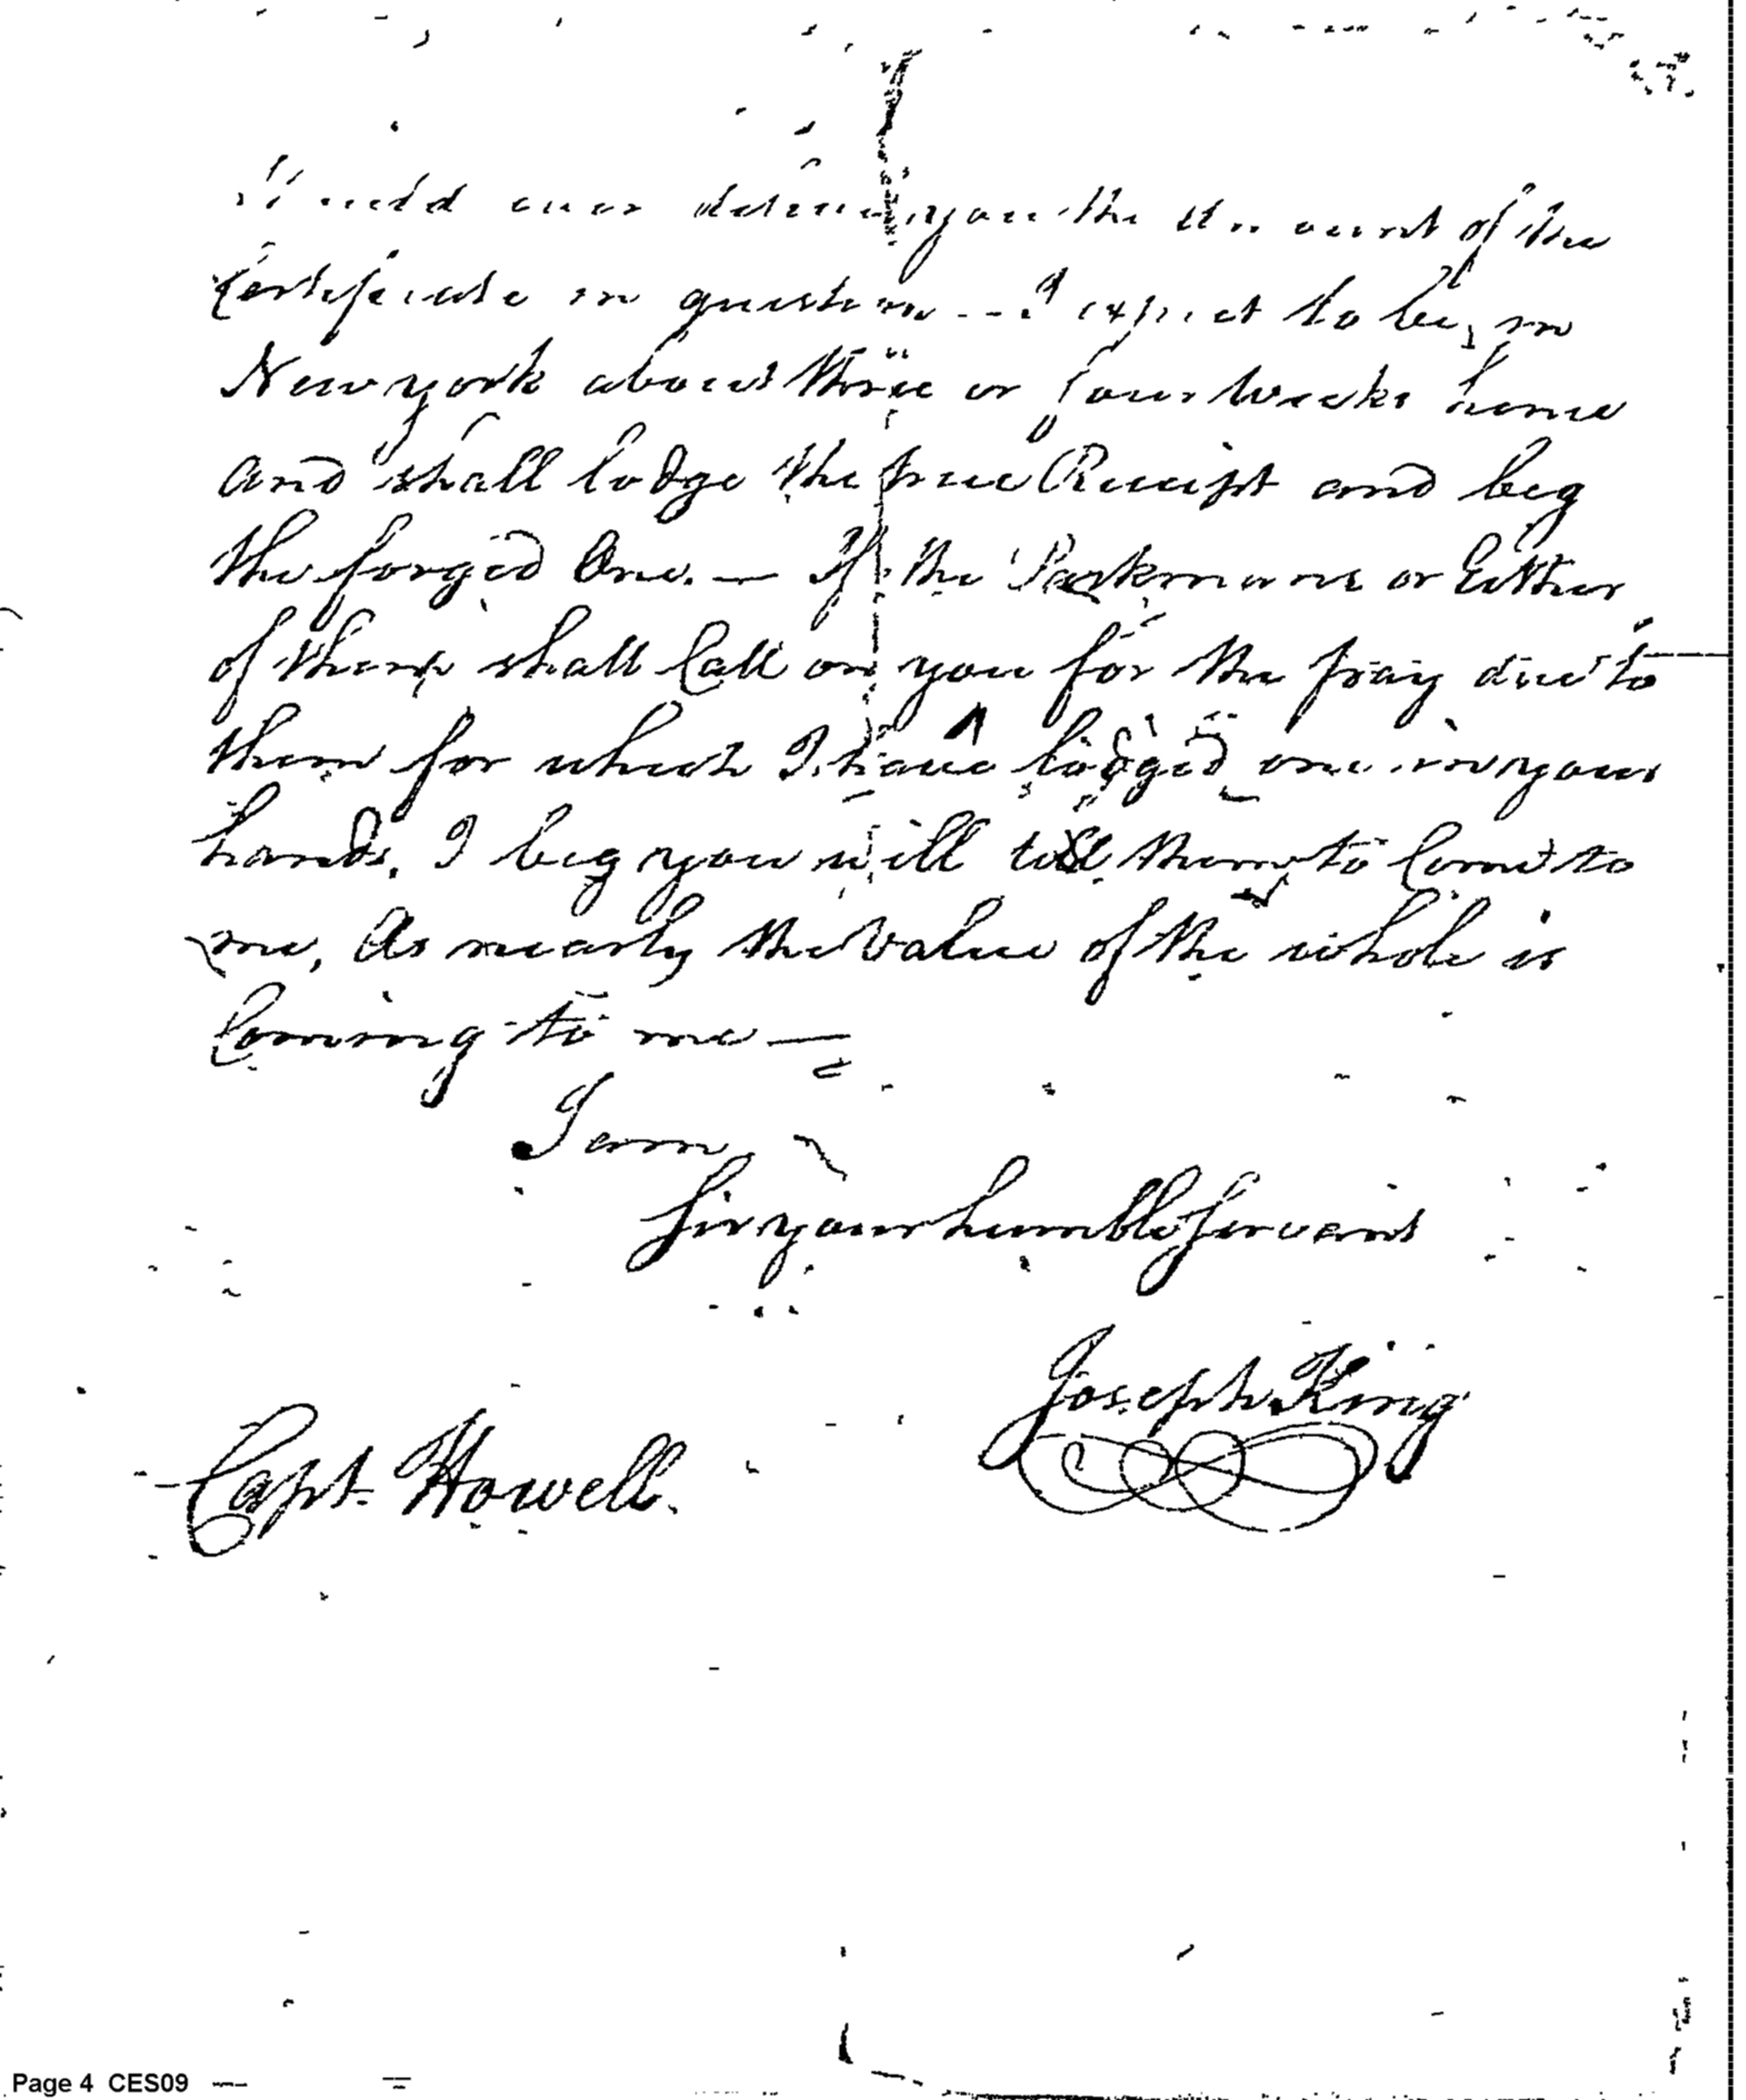 you the amount of the
Certificate in question -- I expect to be in
New york about three or four weeks hence
and shall lodge the true Receipt and beg
the forged One. — If the Parkmans or Either
of them shall Call on you for the pay due to
them for which I have lodged one in your
hands. I beg you will tell them to Come to
me, As nearly the Value of the whole is
Coming to me —
I am
Sir your humble Servant
Joseph King
Capt. Howell.
Page 4 CES09